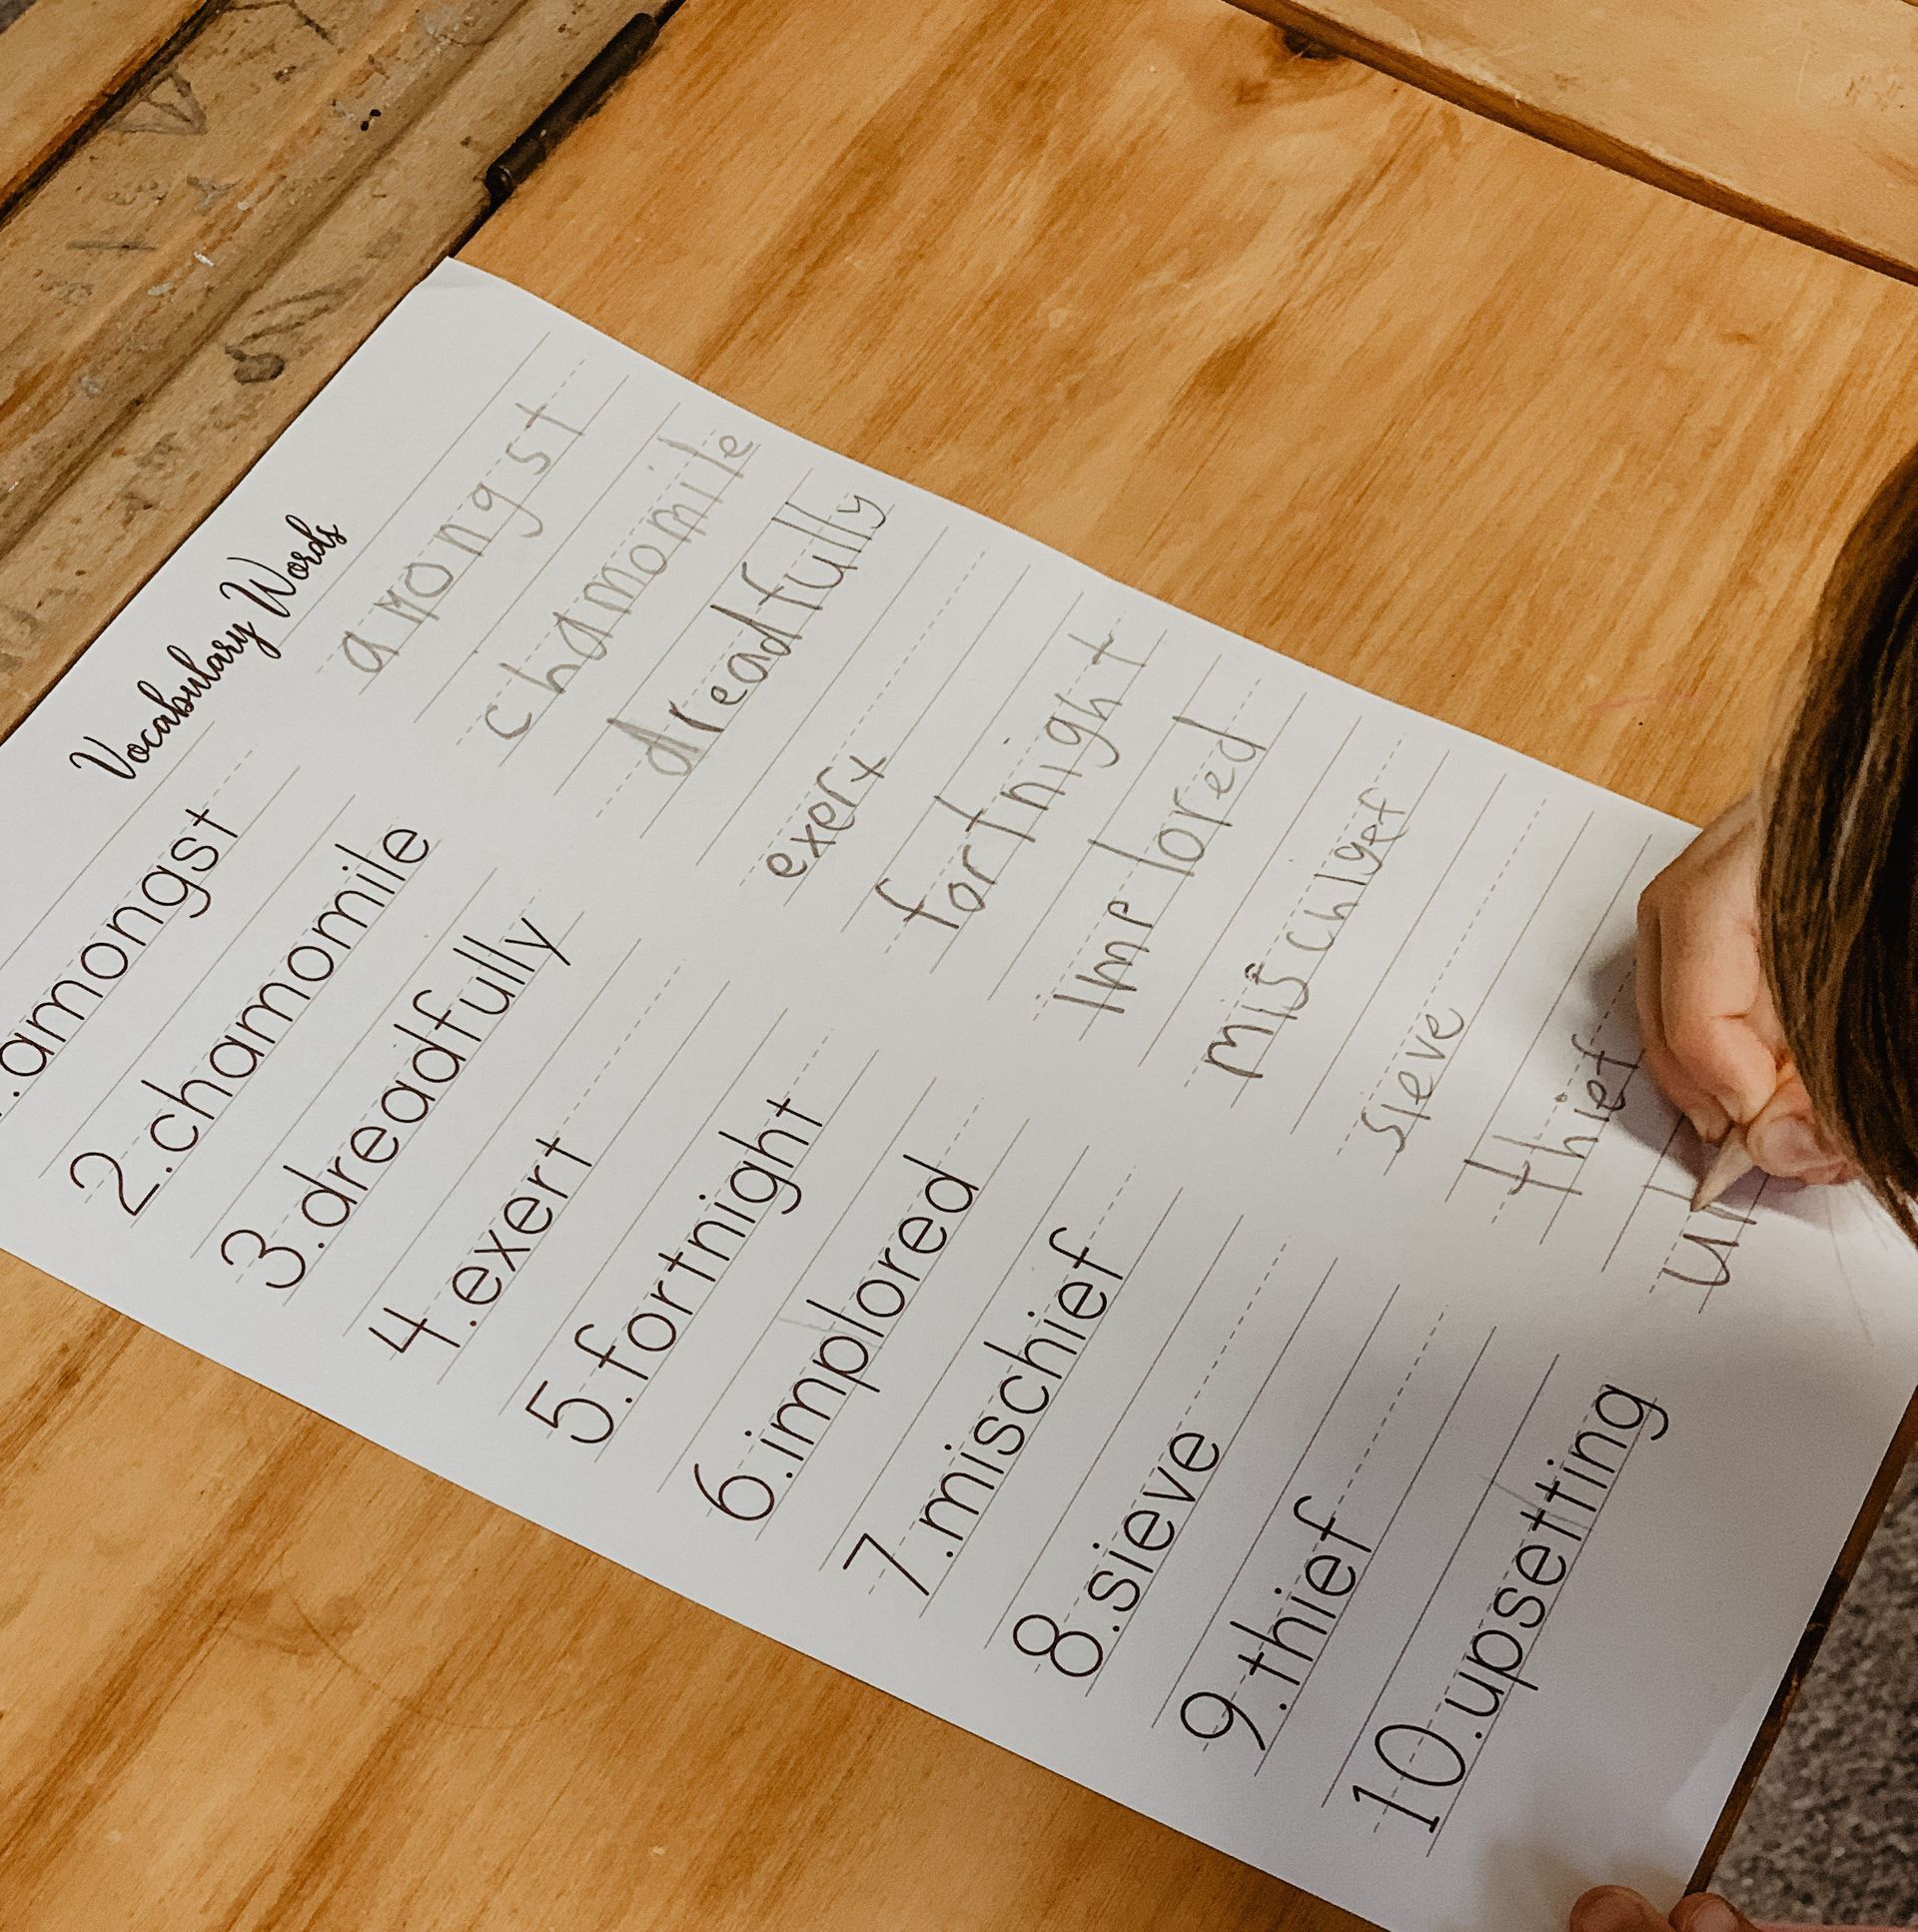 Vocabulary Words
.amongst amongst
2.chamomile chamomile
3.dreadfully dreadfully
4.exert exert
5.fortnight fortnight
6.implored implored
7.mischief mischief
8.sieve sieve
9.thief thief
10.upsetting